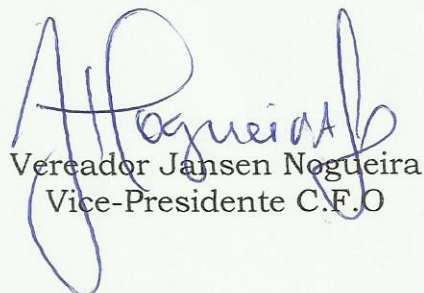 Nogueira
Vereador Jansen Nogueira
Vice-Presidente C.F.O